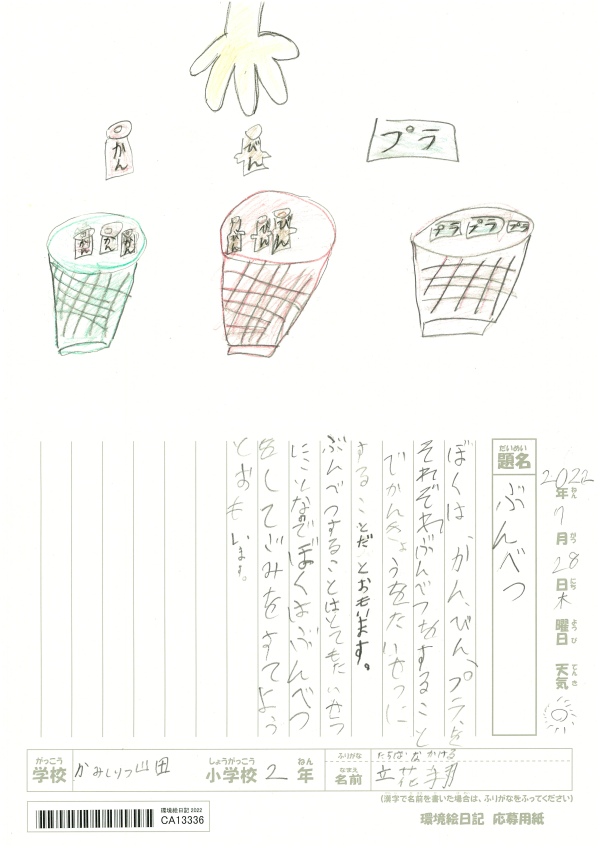 かん
びん
プラ
かん
かん
かん
びん
びん
びん
プラ
プラ
プラ
2022年7月28日木曜日 天気
ねん
がつ
にち
ようび
てんき
だいめい
題名
ぶんべつ
ぼくは、かん、びん、プラ、を
それぞれぶんべつをすること
でかんきょうをたいせつに
することだとおもいます。
ぶんべつすることはとてもたいせつ
にことなでぼくはぶんべつ
をしてごみをすてよう
とおもいます。
がっこう
学校
かみしりつ山田
しょうがっこう
小学校
2
ねん
年
ふりがな
たちばなかける
なまえ
名前
立花翔
(漢字で名前を書いた場合は、ふりがなをふってください)
環境絵日記 2022
CA13336
環境絵日記 応募用紙